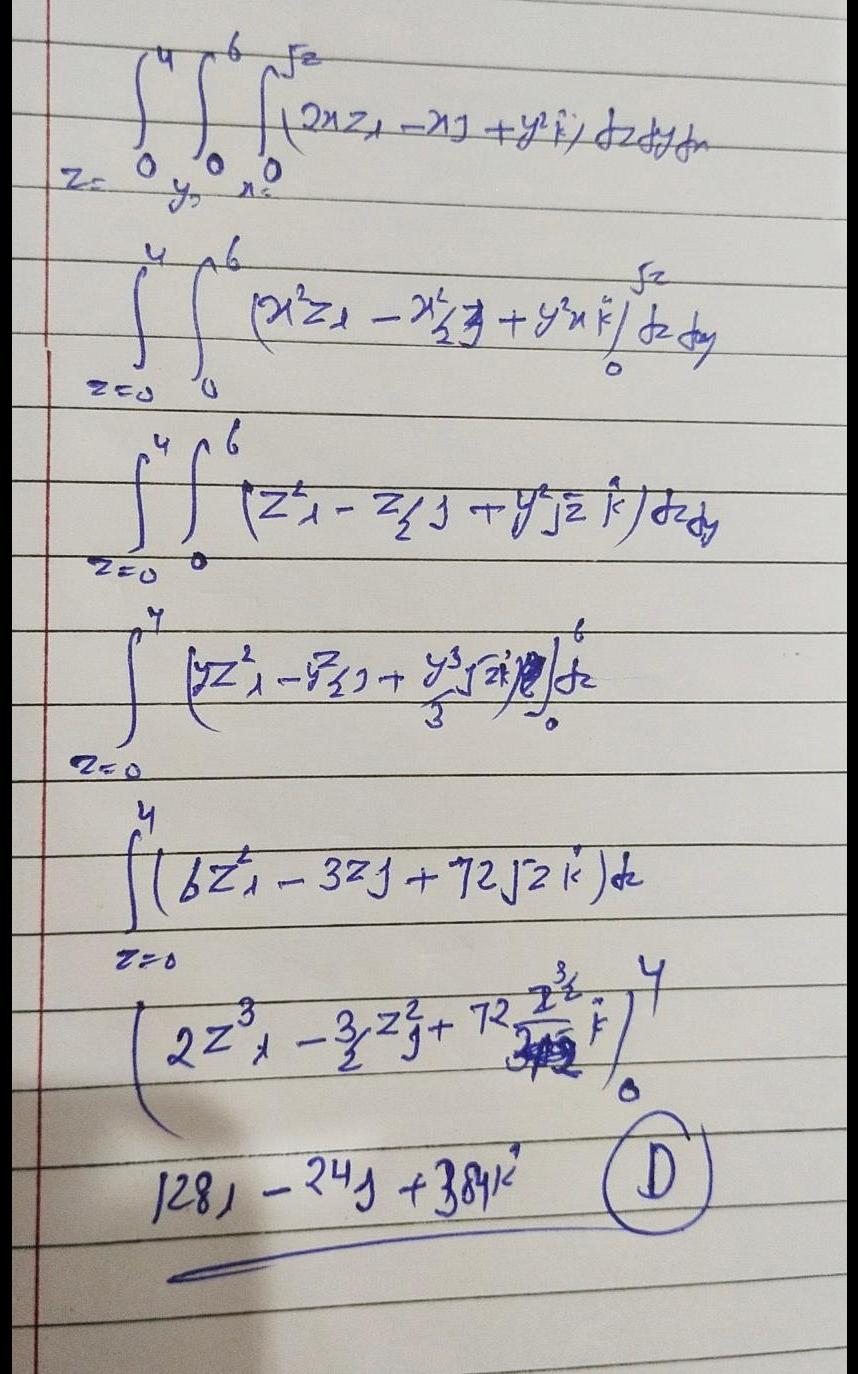 ∫₀⁴ ∫₀⁶ ∫₀^√z (2xzi − xj + y²k̂) dz dy dx
z= y= x=
∫_{z=0}^4 ∫₀⁶ (x²zi − x²/2 j + y²x k̂)₀^√z dz dy
∫_{z=0}^4 ∫₀⁶ (z²i − z/2 j + y²√z k̂) dz dy
∫_{z=0}^4 (yz²i − yz/2 j + y³/3 √z k̂)₀⁶ dz
∫_{z=0}^4 (6z²i − 3zj + 72√z k̂) dz
(2z³i − 3/2 z²j + 72 z^{3/2} k̂)₀⁴
128i − 24j + 384k̂ D